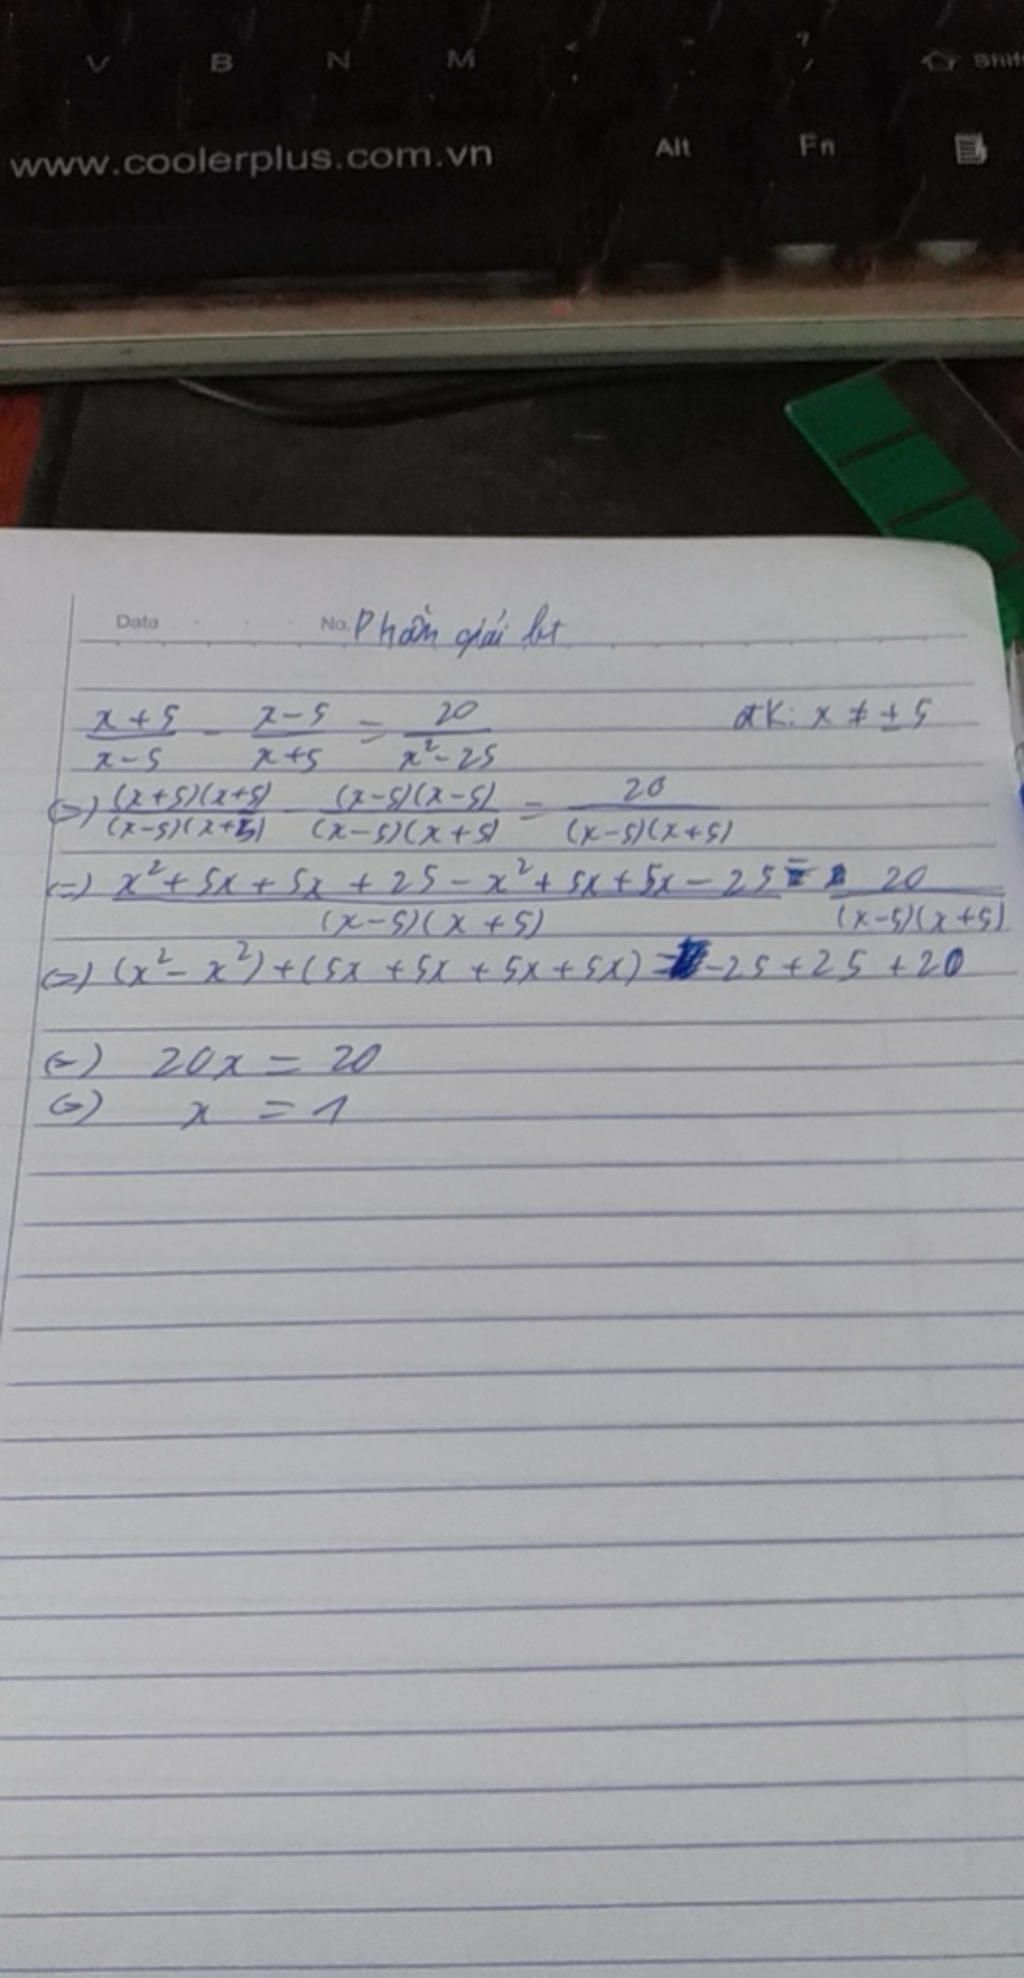 V B N M < ?
/ Shift
www.coolerplus.com.vn Alt Fn
Date No. Phần giải bt
x+5/x-5 - x-5/x+5 = 20/x²-25 đk: x ≠ ±5
(=) (x+5)(x+5)/(x-5)(x+5) - (x-5)(x-5)/(x-5)(x+5) = 20/(x-5)(x+5)
(=) x²+5x+5x+25-x²+5x+5x-25/(x-5)(x+5) = 20/(x-5)(x+5)
(=) (x²-x²)+(5x+5x+5x+5x) = -25+25+20
(=) 20x = 20
(=) x = 1